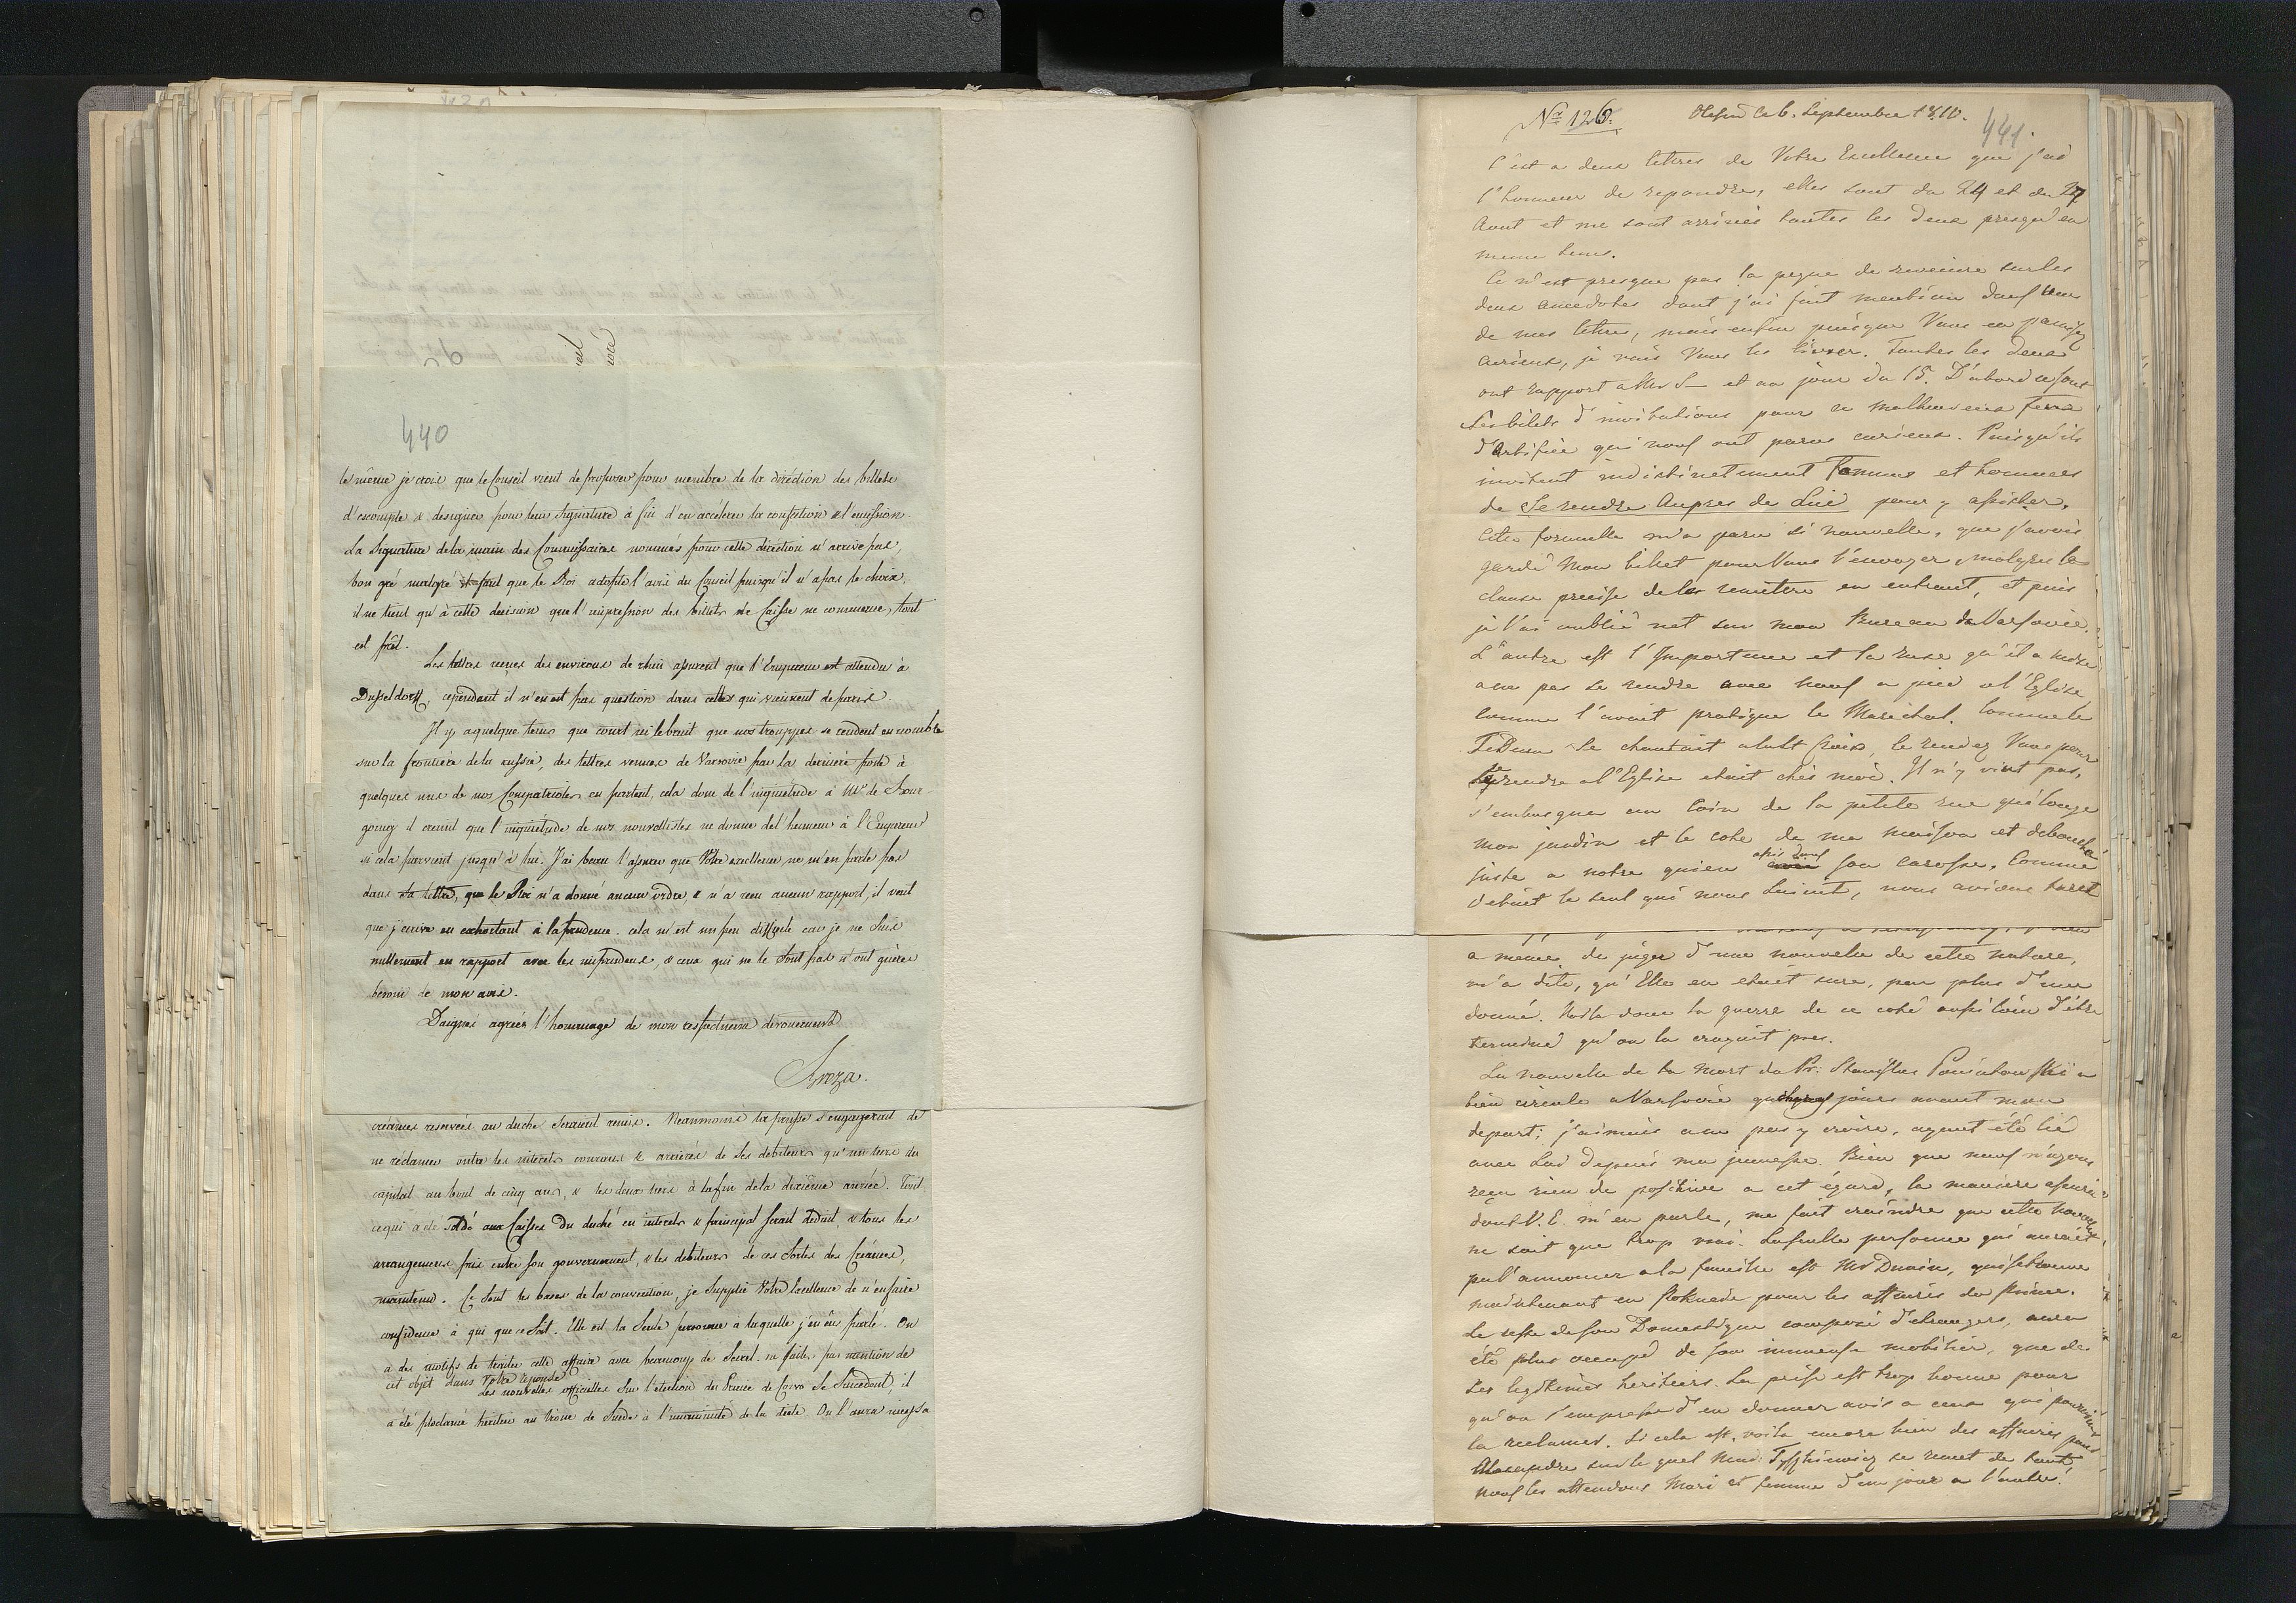 440
le même je crois que le Conseil vient de proposer pour membre de la diréction des billets
d'escompte & designer pour leur signature à fin d'en accélerer la confection & l'emission.
La Signature de la main des Commissaires nommés pour cette diréction n'arrive pas,
bon gré malgré il faut que le Roi adopte l'avis du Conseil puisqu'il n'a pas le choix,
il ne tient qu'à cette decision que l'impression des billets de Caisse ne commence, tout
est prêt.
Les lettres reçues des environs de rhin assurent que l'Empereur est attendu à
Dusseldorff, cependant il n'en est pas question dans celles qui viennent de paris.
Il y a quelque tems que court ici le bruit que nos trouppes se rendent en nombre
sur la frontière de la russie, des lettres venues de Varsovie par la dernière poste à
quelques uns de nos Compatriotes en parlent, cela done de l'inquietude à Mr de Bour-
going il craint que l'inquiétude de nos nouvellistes ne donne de l'humeur à l'Empereur
si cela parvient jusqu'à lui. J'ai beau l'assurer que Votre excellence ne m'en parle pas
dans sa lettre, que le Roi n'a donné aucun ordre & n'a reçu aucun rapport, il veut
que j'ecrive en exhortant à la prudence. cela m'est un peu difficile car je ne suis
nullement en rapport avec les imprudens, & ceux qui ne le sont pas n'ont guères
besoin de mon avis.
Daignés agréer l'hommage de mon respectueux dévouement
Breza.
créances reservées au duché seraient remis. Neanmoins la prusse s'engagerait de
ne réclamer outre les interets courans & arriérés de ses debiteurs qu'un tiers du
capital au bout de cinq ans, & les deux tiers à la fin de la dixième année. Tout
ce qui a été soldé aux Caisses du duché en interets & principal serait deduit, & tous les
arrangemens pris entre son gouvernement, & les debiteurs de ces sortes des Créances,
maintenu. Ce sont les bases de la convention, je supplie Votre Excellence de n'en faire
confidence à qui que ce soit. Elle est la seule personne à laquelle j'en ai parlé. On
a des motifs de traiter cette affaire avec beaucoup de secret. ne faites pas mention de
cet objet dans Votre réponse.
Les nouvelles officielles sur l'election du Prince de Corvo se succedent, il
a été proclamé heritier au trône de Suede à l'unanimité de la diete. On l'aura
N° 126. le 6. Septembre 1810.
441.
C'est a deux lettres de Votre Excellence que j'ai
l'honneur de repondre, elles sont du 24 et du 27
Aout et me sont arrivées toutes les deux presqu'en
meme tems.
Ce n'est presque pas la peyne de revenire sur les
deux anecdotes dont j'ai fait mention dans une
de mes lettres, mais enfin puisque Vous en paroissez
curieux, je vais Vous les livrer. Toutes les deux
ont rapport a Mr S— et au jour du 15. D'abord ce sont
Les bilets d'invitations pour ce malheureux feux
d'Artifice qui nous ont parus curieux. Puisqu'ils
invitent indistinctement femmes et hommes
de Se rendre Aupres de Lui pour y assister.
Cette formulle m'a paru si nouvelle, que j'avois
gardé mon billet pour Vous l'envoyer, malgré la
clause precise de le remettre en entrant, et puis
je l'ai oublié net sur mon Bureau de Varsovie.
L'autre est l'Importance et la ruse qu'il a mise
a ne pas se rendre avec nous a pied a l'Eglise
comme l'avoit pratiqué le Marechal. Comme le
TeDeum se chantait a la St Croix, le rendez Vous pour
se rendre a l'Eglise etait chés moi. Il n'y vint pas,
s'embusqua au coin de la petite rue qui longe
mon jardin et le coté de ma maison et deboucha
juste a notre queue assis dans son carosse. Comme
c'etait le seul qui nous suivit, nous avions
a meme de juger d'une nouvelle de cette nature,
m'a dite, qu'Elle en etait sure, par plus d'une
donné. Voila donc la guerre de ce coté aussi loin d'être
terminé qu'on la croyait pres.
La nouvelle de la mort du Pr: Stanislas Poniatowski a
bien circulé a Varsovie quelques jours avant mon
depart; j'aimais a ne pas y croire, ayant été lié
avec Lui depuis ma jeunesse. Bien que nous n'ayons
reçu rien de positive a cet égard, la maniere assurée
dont V. E. m'en parle, me fait craindre que cette nouvelle
ne soit que trop vrai. La seulle personne qui auroit
pu l'annoncer a la famille est Mr Dmin, qui se trouve
maintenant en pour les affaires du Prince.
Le reste de son Domestique composé d'etrangers, aura
été plus occupé de son immense mobilier, que de
Ses legitimes heritiers. La prise est trop bonne pour
qu'on s'empresse d'en donner avis a ceux qui pourroient
la reclamer. Si cela est, voila encore bien des affaires pour
Alexandre sur le quel Mad: Tyszkiewicz se remet de tout.
Nous les attendons Mari et femme d'un jour a l'autre.